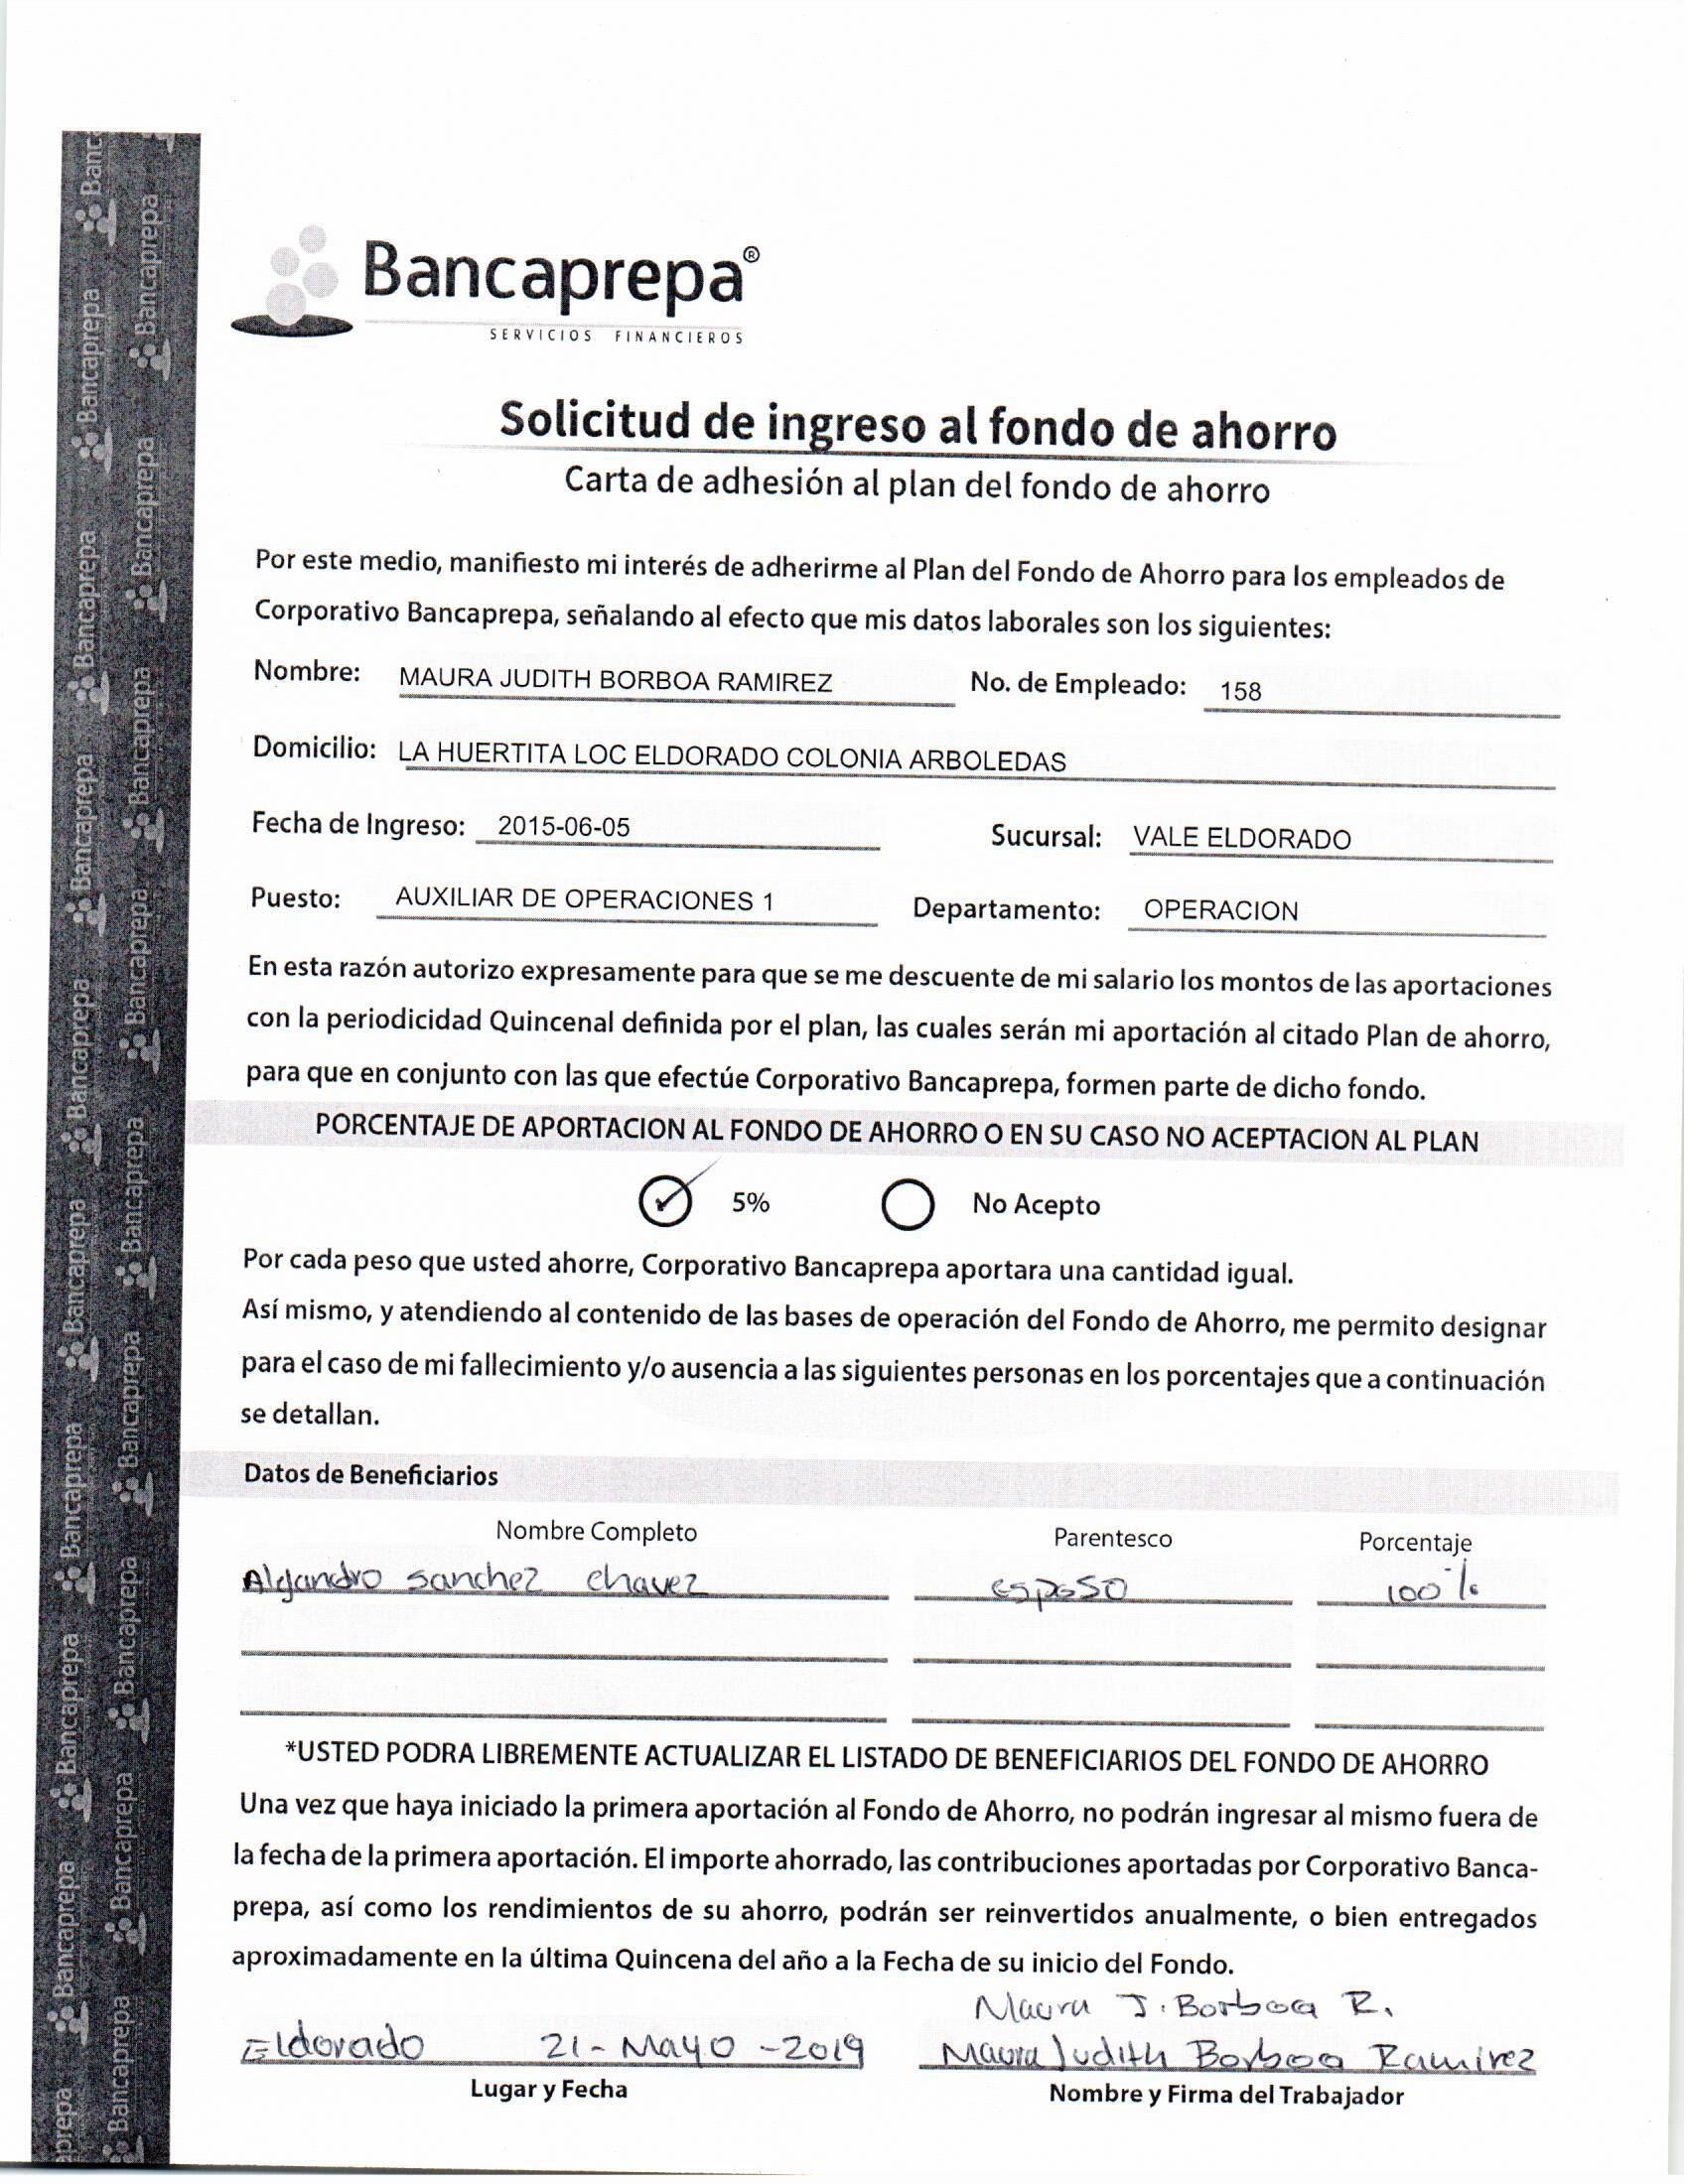 Bancaprepa®
SERVICIOS FINANCIEROS
Solicitud de ingreso al fondo de ahorro
Carta de adhesión al plan del fondo de ahorro
Por este medio, manifiesto mi interés de adherirme al Plan del Fondo de Ahorro para los empleados de
Corporativo Bancaprepa, señalando al efecto que mis datos laborales son los siguientes:
Nombre: MAURA JUDITH BORBOA RAMIREZ No. de Empleado: 158
Domicilio: LA HUERTITA LOC ELDORADO COLONIA ARBOLEDAS
Fecha de Ingreso: 2015-06-05 Sucursal: VALE ELDORADO
Puesto: AUXILIAR DE OPERACIONES 1 Departamento: OPERACION
En esta razón autorizo expresamente para que se me descuente de mi salario los montos de las aportaciones
con la periodicidad Quincenal definida por el plan, las cuales serán mi aportación al citado Plan de ahorro,
para que en conjunto con las que efectúe Corporativo Bancaprepa, formen parte de dicho fondo.
PORCENTAJE DE APORTACION AL FONDO DE AHORRO O EN SU CASO NO ACEPTACION AL PLAN
5% No Acepto
Por cada peso que usted ahorre, Corporativo Bancaprepa aportara una cantidad igual.
Así mismo, y atendiendo al contenido de las bases de operación del Fondo de Ahorro, me permito designar
para el caso de mi fallecimiento y/o ausencia a las siguientes personas en los porcentajes que a continuación
se detallan.
Datos de Beneficiarios
Nombre Completo Parentesco Porcentaje
Alejandro sanchez chavez esposo 100%
*USTED PODRA LIBREMENTE ACTUALIZAR EL LISTADO DE BENEFICIARIOS DEL FONDO DE AHORRO
Una vez que haya iniciado la primera aportación al Fondo de Ahorro, no podrán ingresar al mismo fuera de
la fecha de la primera aportación. El importe ahorrado, las contribuciones aportadas por Corporativo Banca-
prepa, así como los rendimientos de su ahorro, podrán ser reinvertidos anualmente, o bien entregados
aproximadamente en la última Quincena del año a la Fecha de su inicio del Fondo.
Maura J. Borboa R.
Eldorado 21-Mayo-2019 Maura Judith Borboa Ramirez
Lugar y Fecha Nombre y Firma del Trabajador